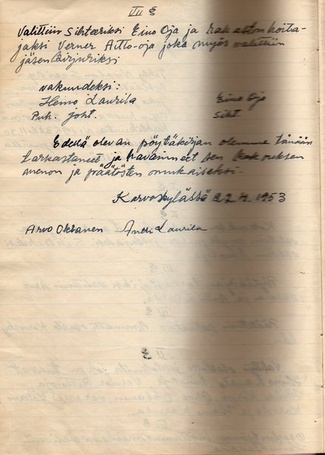 VII §
Valittiin Sihteeriksi Eino Oja ja rahastonhoita-
jaksi Verner Aitto-oja joka myös valittiin
jäsenkirjuriksi
vakuudeksi:
Heino Laurila Eino Oja
Puh. joht. Siht
Edellä olevan pöytäkirjan olemme tänään
tarkastaneet ja havainneet sen kokouksen
menon ja päätösten mukaiseksi.
Karvoskylässä 22 4 1953
Arvo Oksanen Antti Laurila